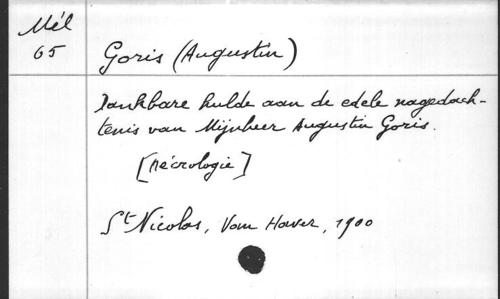 Mél
65
Goris (Augustin)
Dankbare hulde aan de edele nagedach-
tenis van Mijnheer Augustin Goris.
[nécrologie]
St Nicolas, Van Haver, 1900